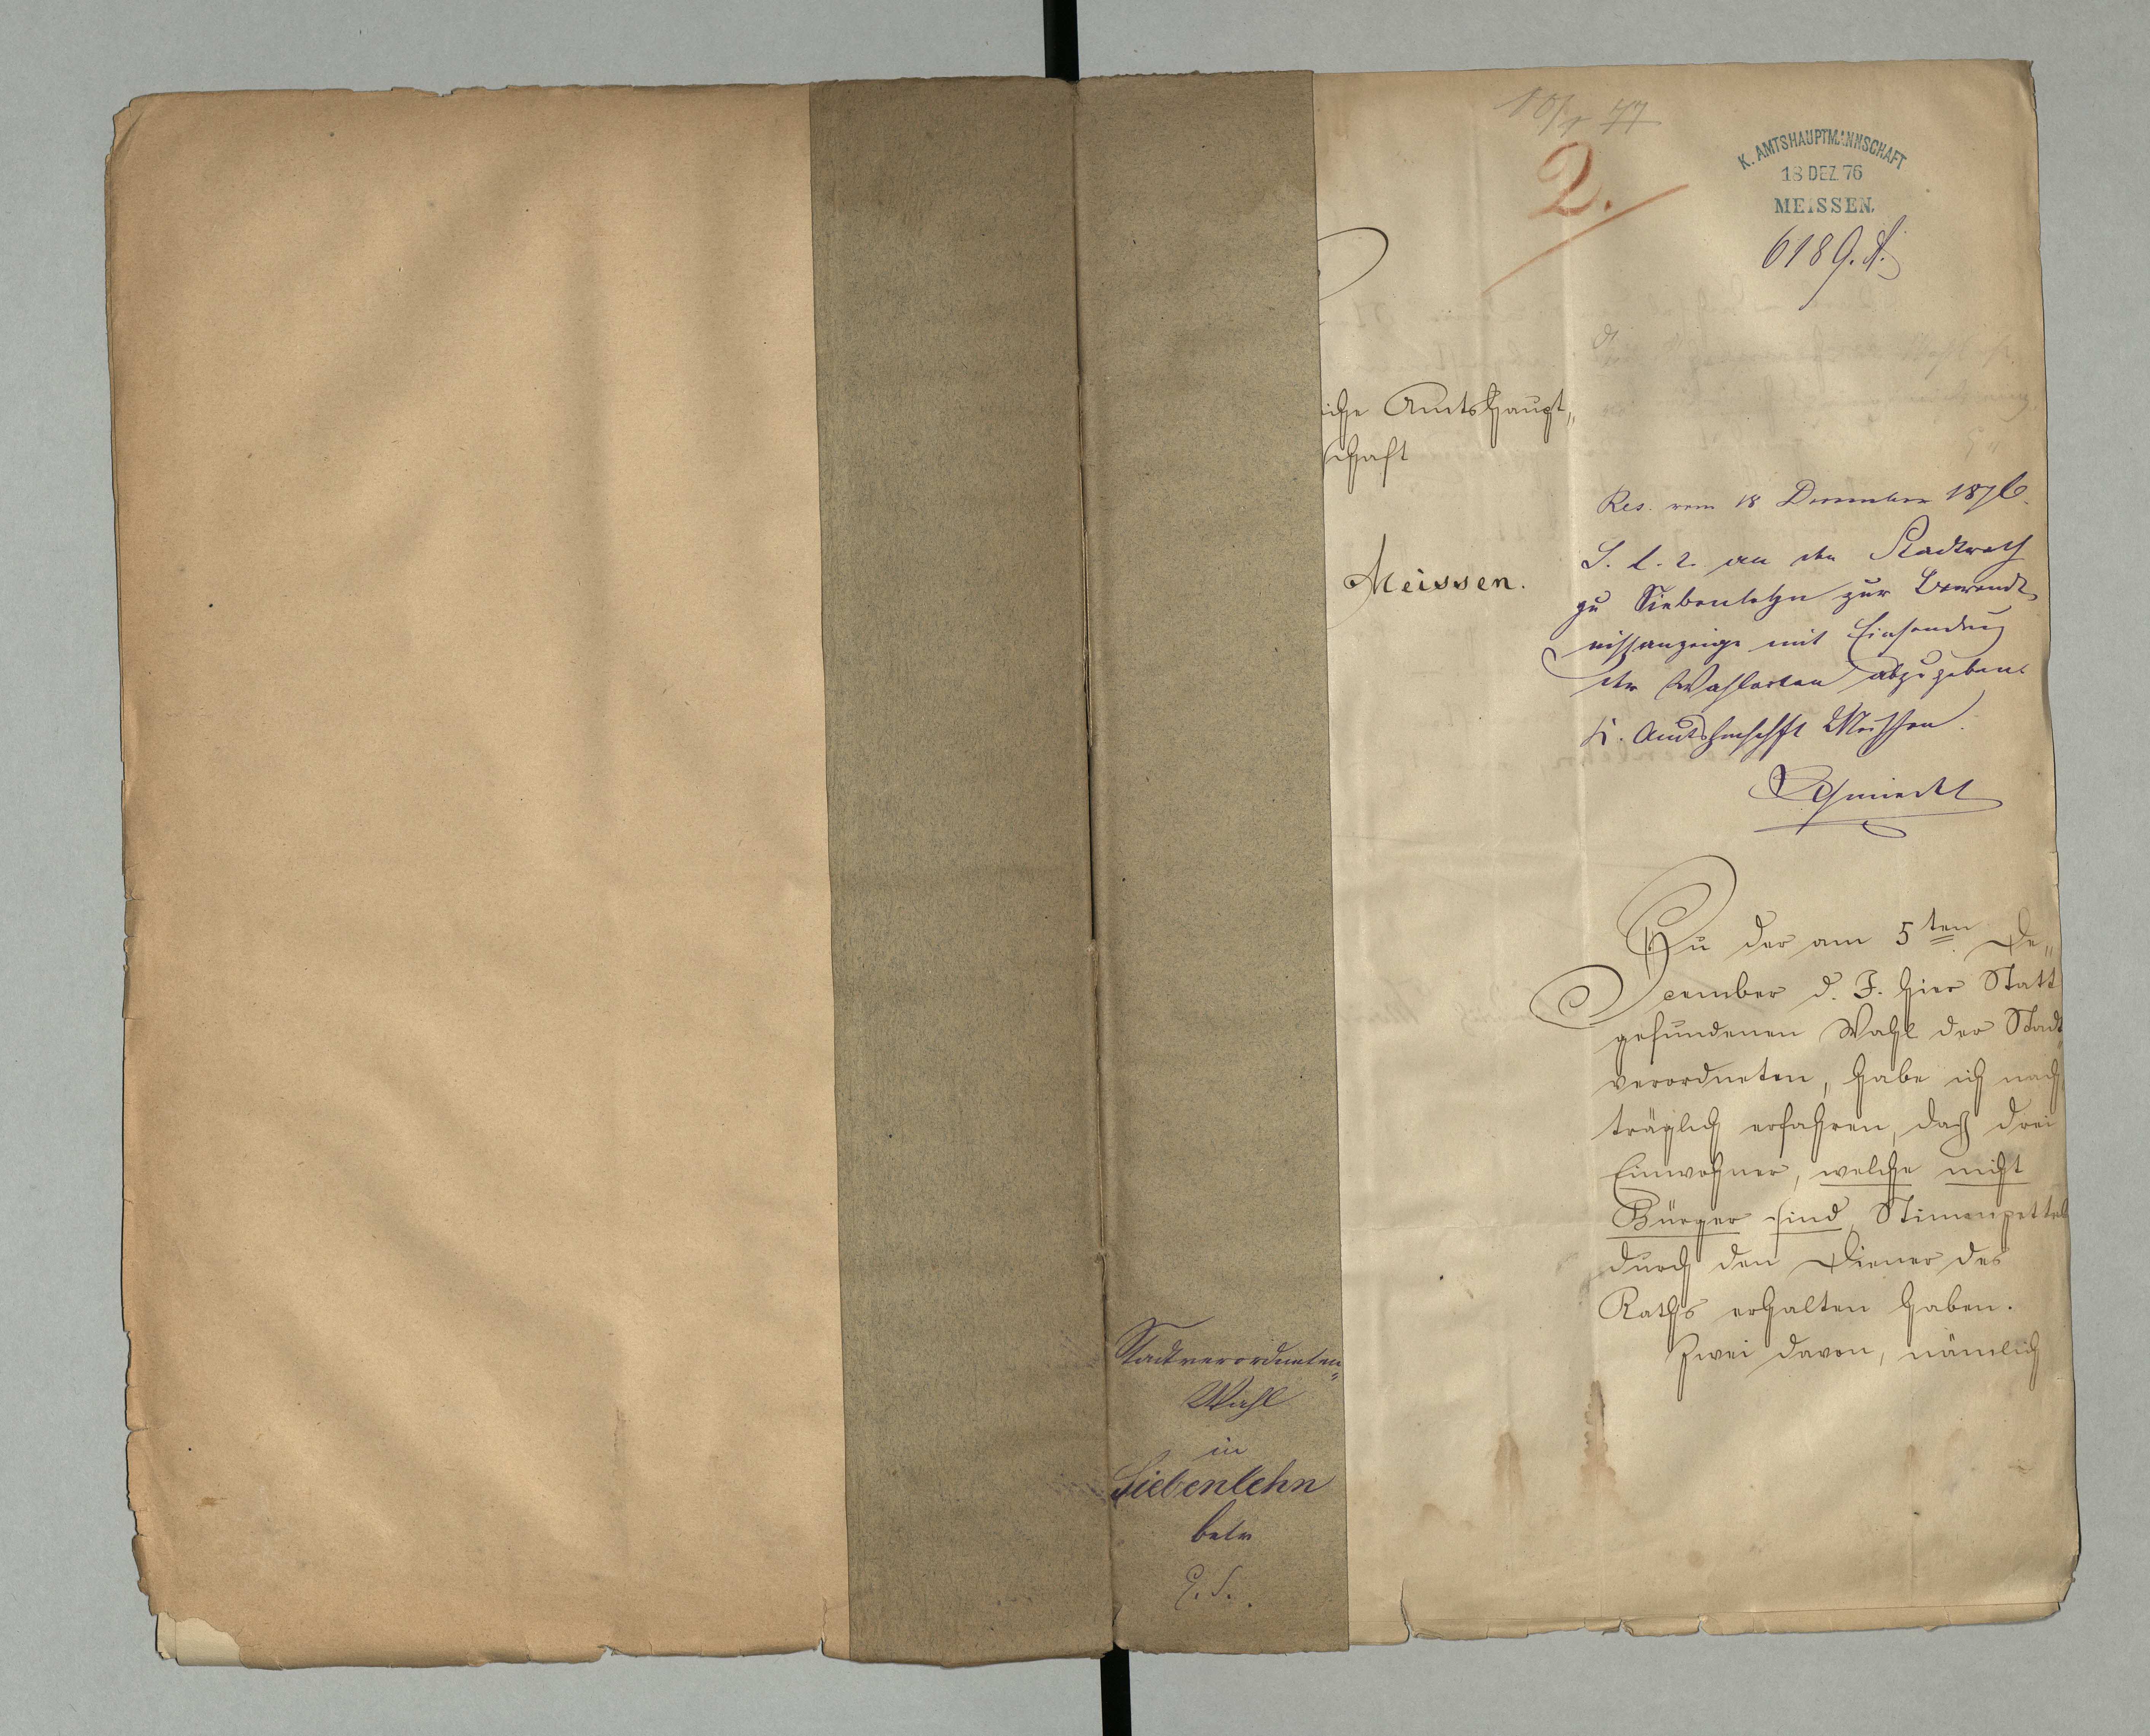 10/1 77
2.
K. AMTSHAUPTMANNSCHAFT
18 DEZ. 76
MEISSEN.
6189. A.
iche Amtshaupt„
schaft
Meissen.
Res. vom 18 December 1876.
S. l. r. an den Stadtrath
zu Siebenlehn zur Bewandt„
nißanzeige mit Einsendung
der Wahlacten abzugeben.
K. Amtshmschft Meißen.
Schmiedel
Zu der am 5ten De„
cember d. J. hier Statt
gefundenen Wahl der Stadt„
verordneten, habe ich nach„
träglich erfahren, daß drei
Einwohner, welche nicht
Bürger sind, Stimmzettel
durch den Diener des
Raths erhalten haben.
Zwei davon, nämlich
Stadtverordneten„
Wahl
in
Siebenlehn
betr